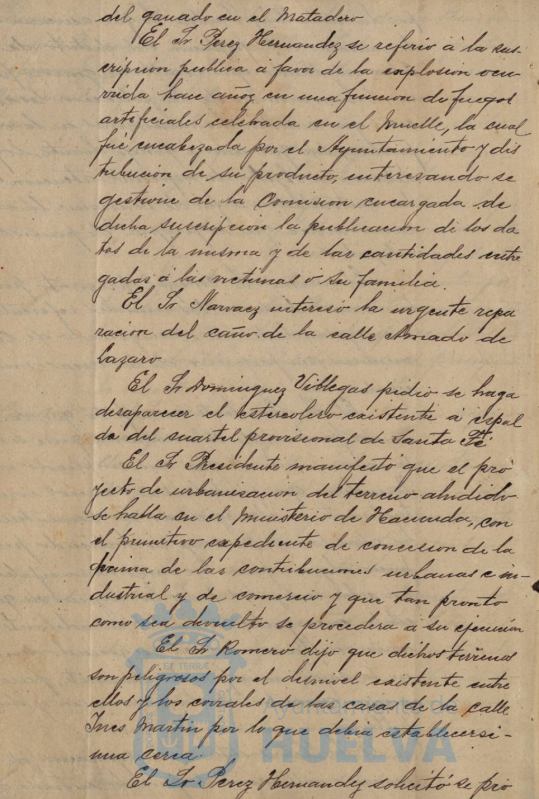 del ganado en el Matadero
El Sr Perez Hernandez se refirio á la sus-
cripcion publica á favor de la explosion ocu-
rrida hace años en una funcion de fuegos
artificiales celebrada en el Muelle, la cual
fué encabezada por el Ayuntamiento y dis
tribucion de su producto, interesando se
gestione de la Comision encargada de
dicha suscripcion la publicacion de los da
tos de la misma y de las cantidades entre
gadas á las victimas ó su familia.
El Sr Narvaez intereso la urgente repa
racion del caño de la calle Amado de
Lazaro
El Sr Dominguez Villegas pidio se haga
desaparecer el estercolero existente á espal
da del cuartel provisional de Santa Fé
El Sr Presidente manifestó que el pro
yecto de urbanizacion del terreno aludido
se halla en el Ministerio de Hacienda, con
el primitivo expediente de concesion de la
decima de las contribuciones urbanas e in-
dustrial y de comercio y que tan pronto
como sea devuelto se procedera a su ejecucion
El Sr Romero dijo que dichos terrenos
son peligrosos por el desnivel existente entre
ellos y los corrales de las casas de la calle
Ines Martin por lo que debia establecerse
una cerca
El Sr Perez Hernandez solicitó se pro
HUELVA